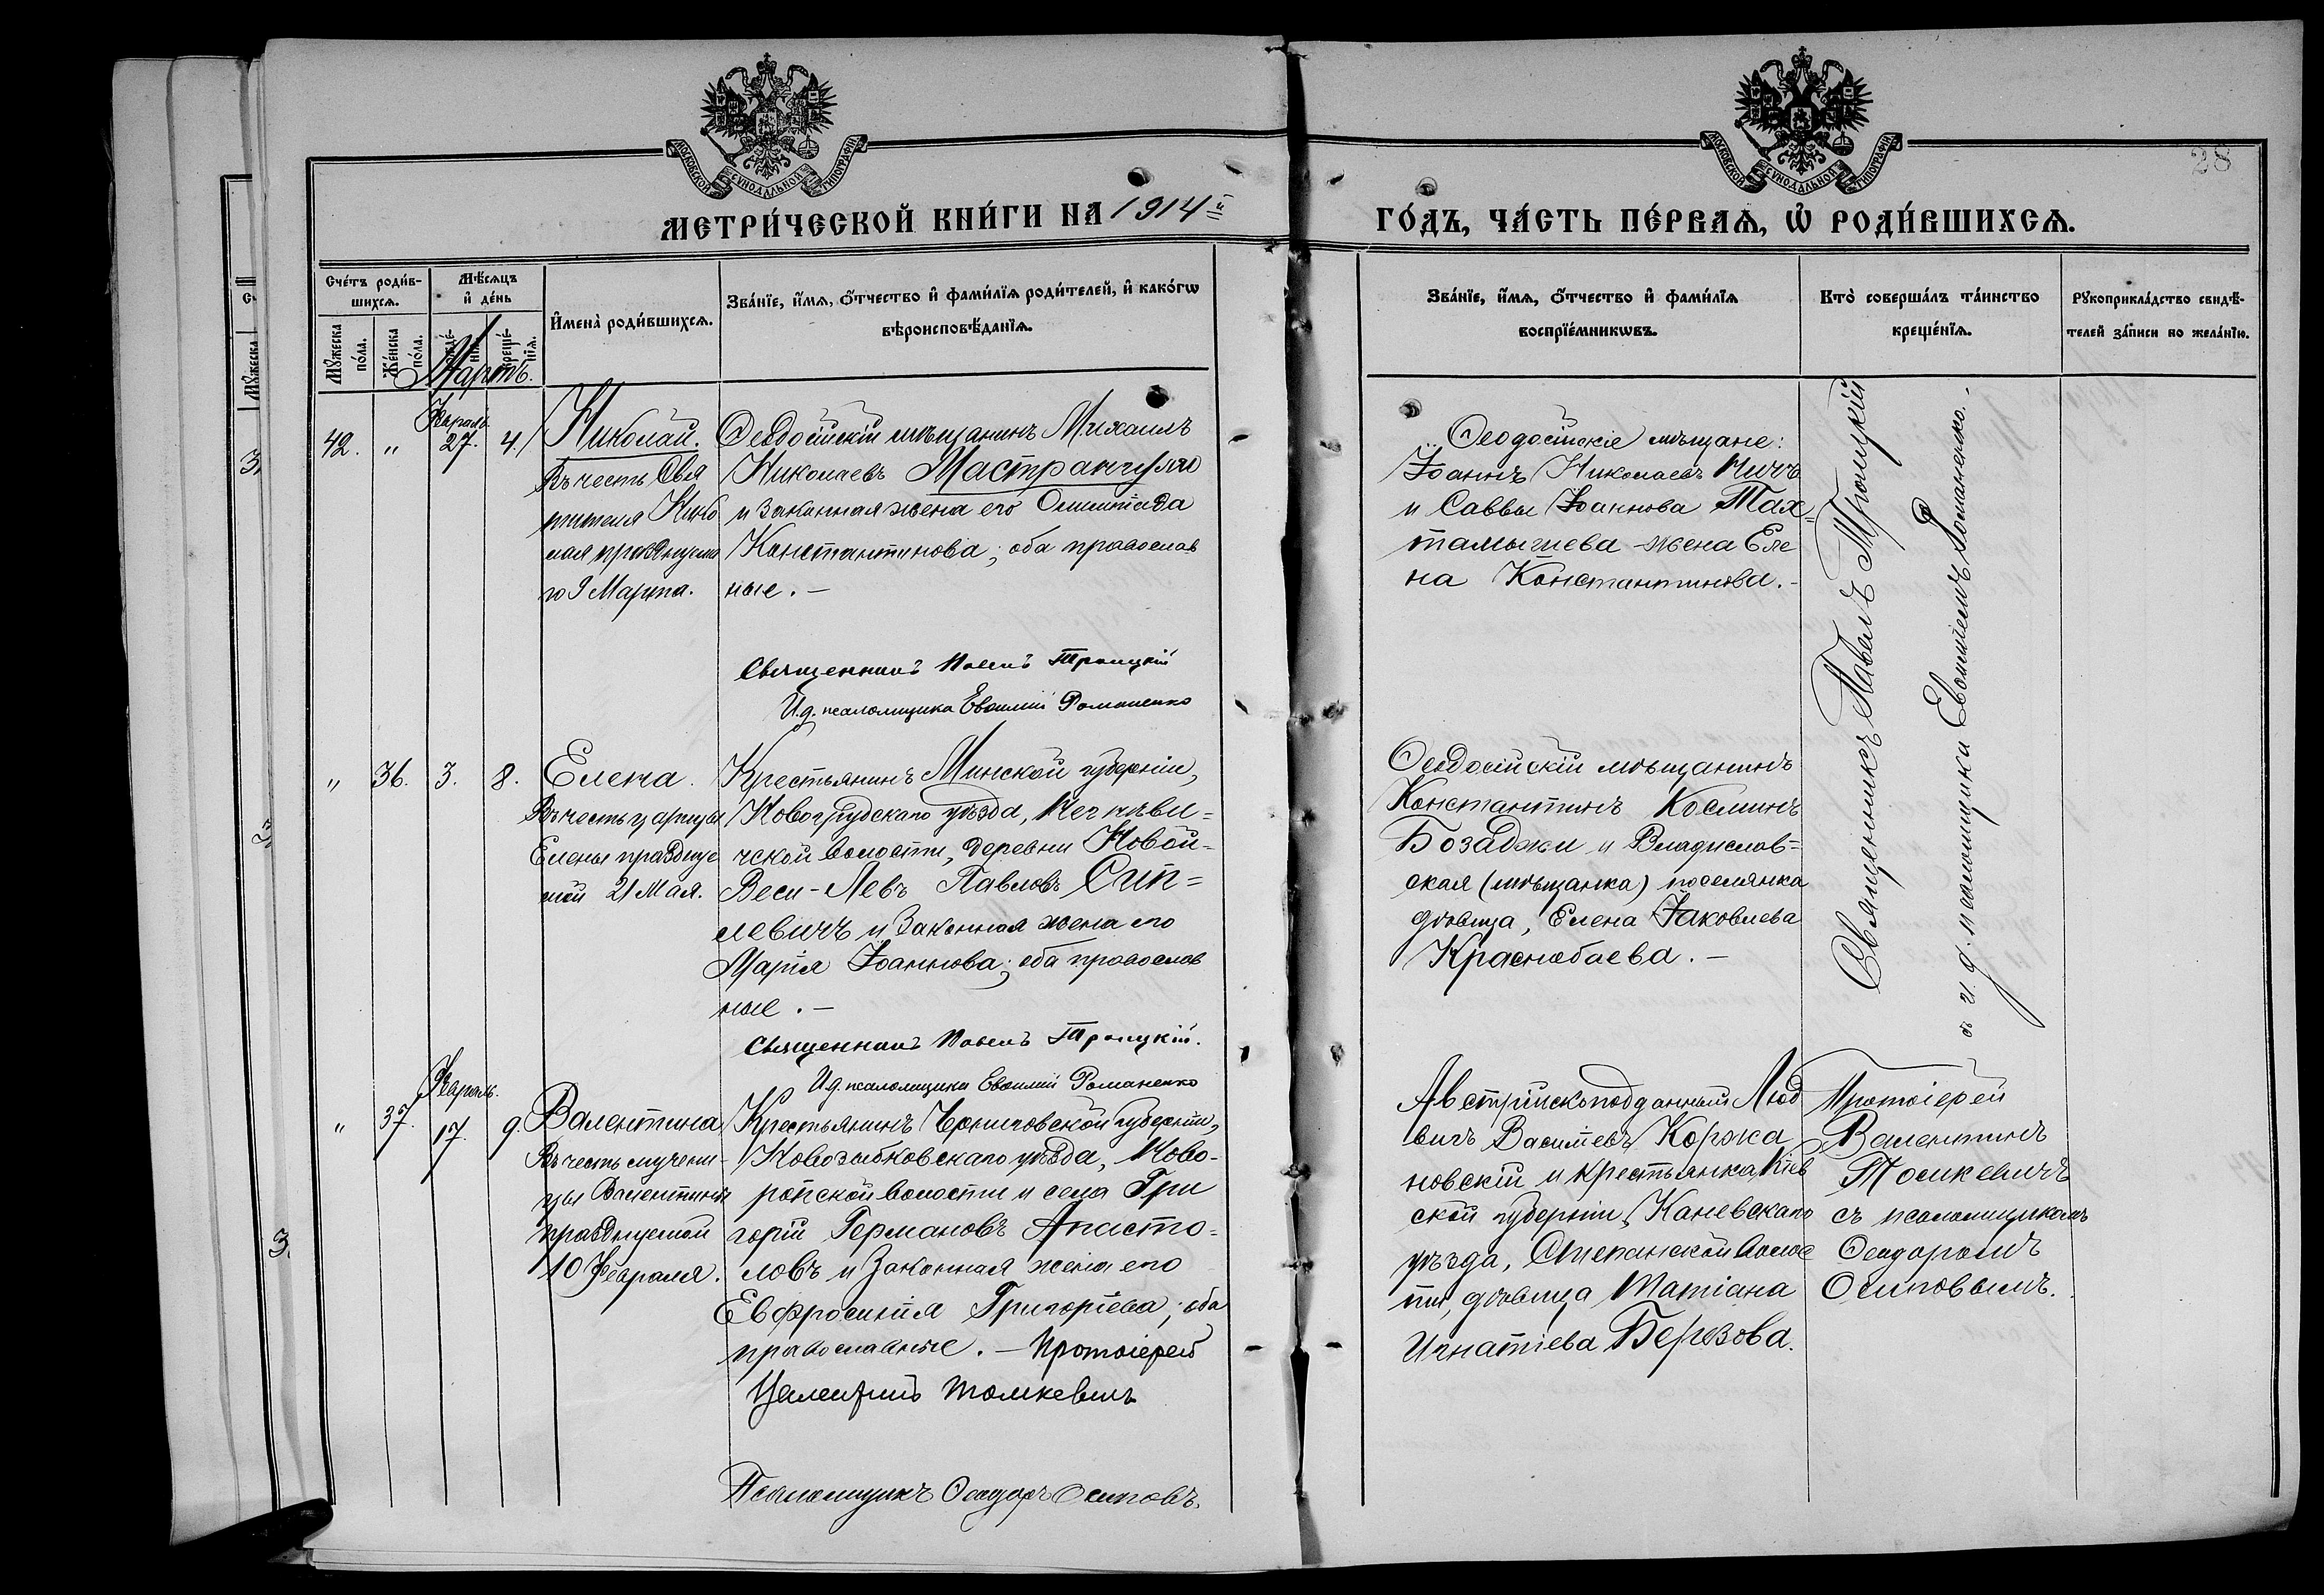 28
МОСКОВСКОЙ СѴНОДАЛЬНОЙ ТИПОГРАФІИ
МОСКОВСКОЙ СѴНОДАЛЬНОЙ ТИПОГРАФІИ
МЕТРИ́ЧЕСКОЙ КНИ́ГИ НА 1914й
ГО́ДЪ, ЧА́СТЬ ПЕ́РВАѦ, Ѽ РОДИ́ВШИХСѦ.
Сче́тъ роди́в-
шихсѧ.
Мꙋ́жеска по́ла.
Же́нска по́ла.
Мѣ́сѧцъ
и҆ де́нь
креще́-нїѧ.
Мартъ.
И҆мена̀ роди́вшихсѧ.
Зва́нїе, и҆́мѧ, ѻ҆́тчество и҆ фами́лїѧ роди́телей, и҆ како́гѡ
вѣроисповѣ́данїѧ.
Зва́нїе, и҆́мѧ, ѻ҆́тчество и҆ фами́лїѧ
воспрїе́мникѡвъ.
Кто̀ соверша́лъ та́инство
креще́нїѧ.
Рꙋкоприкла́дство свидѣ́-
телей за́писи по жела́нїю.
42. " Февраль 27. 4.
Николай.
Въ честь Свя
тителя Нико
лая празднуема
го 9 Марта.
Ѳеодосійскій мѣщанинъ Михаилъ
Николаевъ Мастрангуло
и законная жена его Олимпиада
Константинова; оба православ
ные. —
Священникъ Павелъ Троицкій
И.д. псаломщика Евѳимій Романенко
Ѳеодосійскіе мѣщане:
Іоаннъ Николаевъ Ничъ
и Саввы Іоаннова Тах=
тамышева жена Еле
на Константинова. —
Священникъ Павелъ Троицкій
съ и. д. псаломщика Евѳиміемъ Романенко. —
" 36. 3. 8.
Елена.
Въ честь царицы
Елены празднуе
мой 21 Мая.
Крестьянинъ Минской губерніи,
Новогрудскаго уѣзда,
ческой волости, деревни Новой-
Веси - Левъ Павловъ Сип=
левичъ и законная жена его
Марія Іоаннова; оба православ
ные. —
Священникъ Павелъ Троицкій.
И.д. псаломщика Евѳимій Романенко
Ѳеодосійскій мѣщанинъ
Константинъ Косминъ
Бозаджи и Владислав=
ская (мѣщанка) поселянка
дѣвица, Елена Іаковлева
Краснобаева. —
" 37. Февраль. 17. 9.
Валентина
Въ честь мучени-
цы Валентины
празднуемой
10 Февраля.
Крестьянинъ Черниговской губерніи,
Новозыбковскаго уѣзда, Ново-
ропской волости и села Гри
горій Германовъ Апосто=
ловъ и законная жена его
Евфросинія Григоріева; оба
православные. — Протоіерей
Валентинъ Томкевичъ
Псаломщикъ Ѳеодоръ Осиповъ.
Австрійскоподданный Люд
вигъ Васильевъ Коржа
новскій и крестьянка Кіев
ской губерніи, Каневскаго
уѣзда, Степанской волос
ти, дѣвица Татіана
Игнатіева Березова.
Протоіерей
Валентинъ
Томкевичъ
съ псаломщикомъ
Ѳеодоромъ
Осиповымъ.